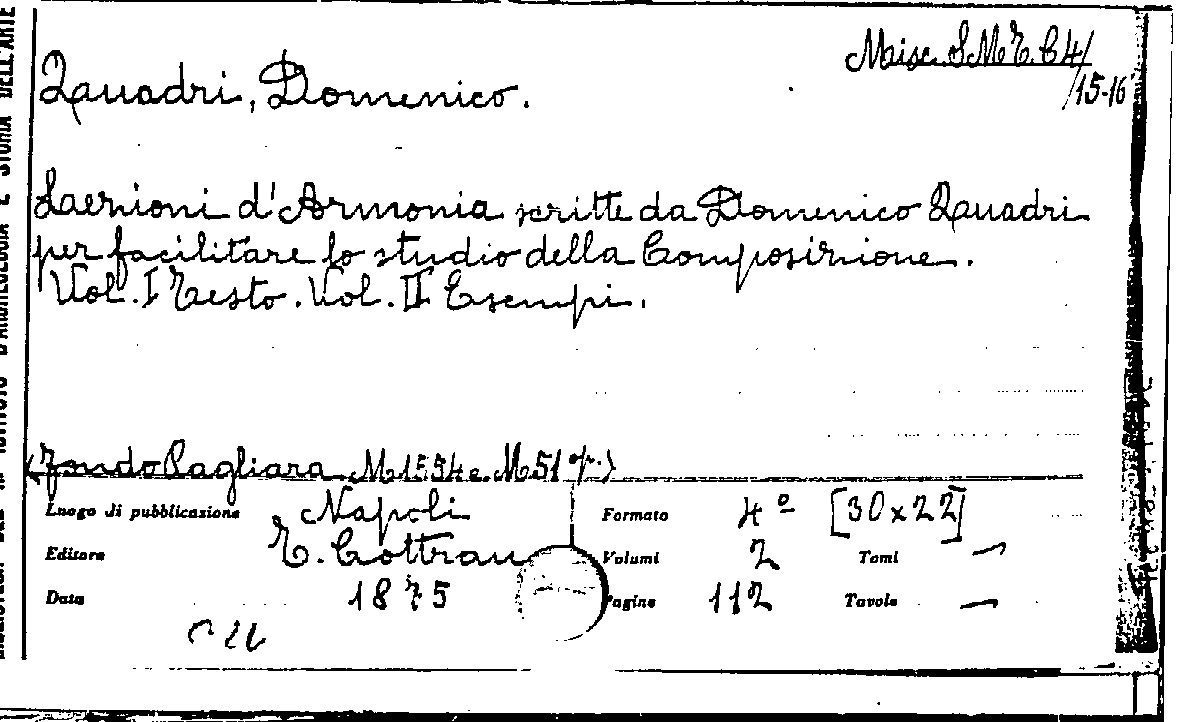 Misc. S.M.E. C4/
/15-16
Quadri, Domenico.
Laezioni d'Armonia scritte da Domenico Quadri
per facilitare lo studio della Composizione.
Vol. I Testo. Vol. II Esempi.
(Fondo Pagliara. M1554 e. M51
Luogo di pubblicazione Napoli Formato 4º [30x22]
Editore T. Cottrau Volumi 2 Tomi —
Data 1875 Pagine 112 Tavole —
D'ARCHEOLOGIA E STORIA DELL'ARTE